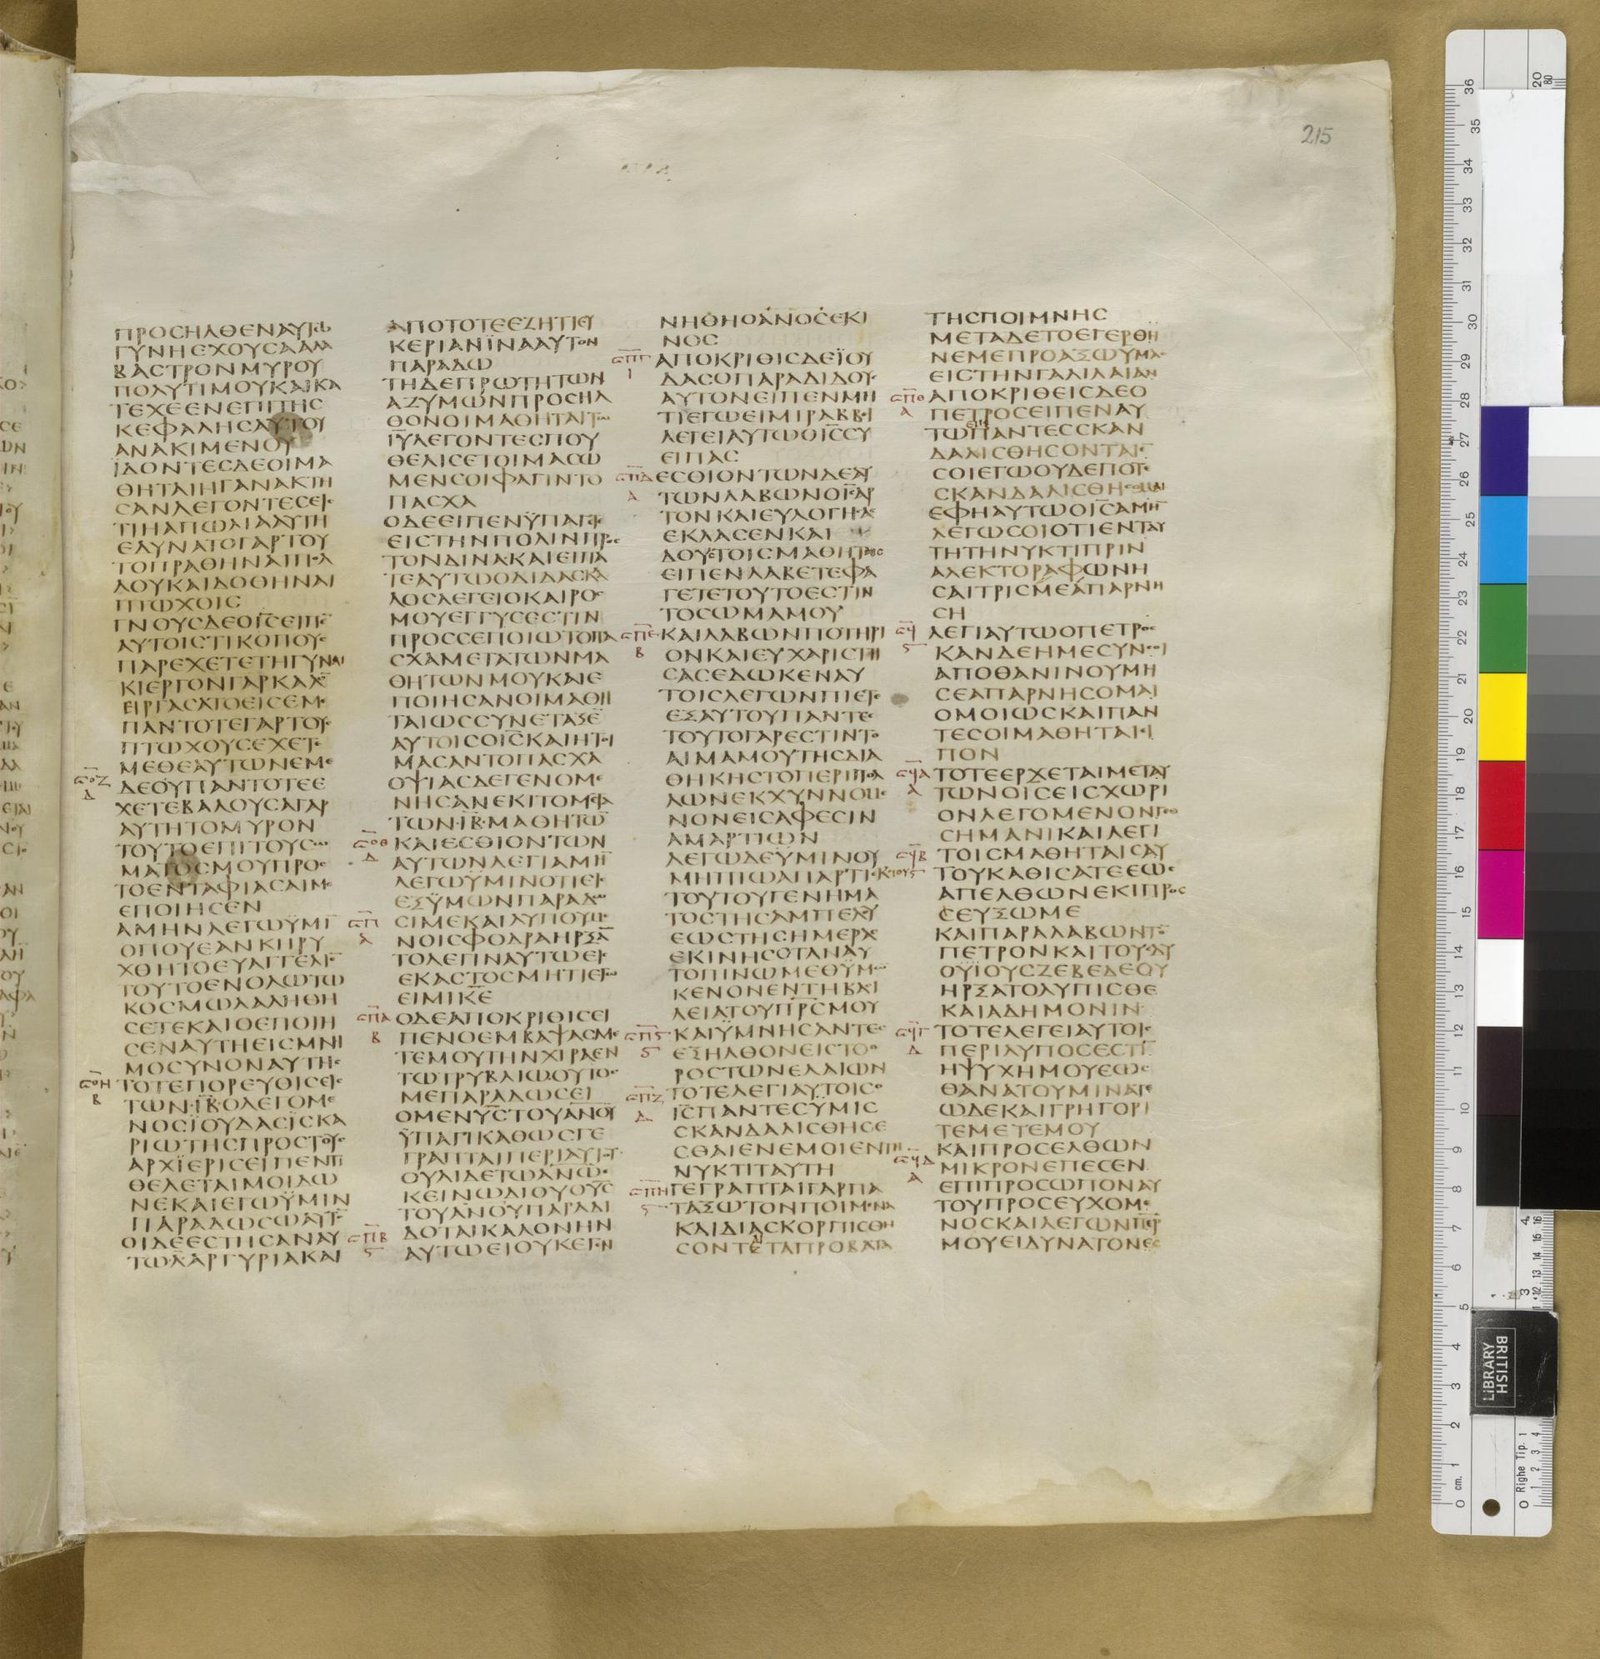 215
ΠΡΟϹΗΛΘΕΝΑΥΤΩ
ΓΥΝΗΕΧΟΥϹΑΑΛΑ
ΒΑϹΤΡΟΝΜΥΡΟΥ
ΠΟΛΥΤΙΜΟΥΚΑΙΚΑ
ΤΕΧΕΕΝΕΠΙΤΗϹ
ΚΕΦΑΛΗϹΑΥΤΟΥ
ΑΝΑΚΙΜΕΝΟΥ
ΪΔΟΝΤΕϹΔΕΟΙΜΑ
ΘΗΤΑΙΗΓΑΝΑΚΤΗ
ϹΑΝΛΕΓΟΝΤΕϹΕΙϹ
ΤΙΗΑΠΩΛΙΑΑΥΤΗ
ΕΔΥΝΑΤΟΓΑΡΤΟΥ
ΤΟΠΡΑΘΗΝΑΙΠΟΛ
ΛΟΥΚΑΙΔΟΘΗΝΑΙ
ΠΤΩΧΟΙϹ
ΓΝΟΥϹΔΕΟΙϹΕΙΠΕ̅
ΑΥΤΟΙϹΤΙΚΟΠΟΥϹ
ΠΑΡΕΧΕΤΕΤΗΓΥΝΑΙ
ΚΙΕΡΓΟΝΓΑΡΚΑΛΟ̅
ΕΙΡΓΑϹΑΤΟΕΙϹΕΜΕ
ΠΑΝΤΟΤΕΓΑΡΤΟΥϹ
ΠΤΩΧΟΥϹΕΧΕΤΕ
ΜΕΘΕΑΥΤΩΝΕΜΕ
ΔΕΟΥΠΑΝΤΟΤΕΕ
ΧΕΤΕΒΑΛΟΥϹΑΓΑΡ
ΑΥΤΗΤΟΜΥΡΟΝ
ΤΟΥΤΟΕΠΙΤΟΥϹΩ
ΜΑΤΟϹΜΟΥΠΡΟϹ
ΤΟΕΝΤΑΦΙΑϹΑΙΜΕ
ΕΠΟΙΗϹΕΝ
ΑΜΗΝΛΕΓΩΫΜΙ̅
ΟΠΟΥΕΑΝΚΗΡΥ
ΧΘΗΤΟΕΥΑΓΓΕΛΙΟ̅
ΤΟΥΤΟΕΝΟΛΩΤΩ
ΚΟϹΜΩΛΑΛΗΘΗ
ϹΕΤΕΚΑΙΟΕΠΟΙΗ
ϹΕΝΑΥΤΗΕΙϹΜΝΗ
ΜΟϹΥΝΟΝΑΥΤΗϹ
ΤΟΤΕΠΟΡΕΥΘΙϹΕΙϹ
ΤΩΝΙΒΟΛΕΓΟΜΕ
ΝΟϹΪΟΥΔΑϹΪϹΚΑ
ΡΙΩΤΗϹΠΡΟϹΤΟΥϹ
ΑΡΧΪΕΡΙϹΕΙΠΕΝΤΙ
ΘΕΛΕΤΑΙΜΟΙΔΩ
ΝΕΚΑΙΕΓΩΫΜΙΝ
ΠΑΡΑΔΩϹΩΑΥΤΟ̅
ΟΙΔΕΕϹΤΗϹΑΝΑΥ
ΤΩΛΑΡΓΥΡΙΑΚΑΙ
ΑΠΟΤΟΤΕΕΖΗΤΙΕΥ
ΚΕΡΙΑΝΪΝΑΑΥΤΟΝ
ΠΑΡΑΔΩ
ΤΗΔΕΠΡΩΤΗΤΩΝ
ΑΖΥΜΩΝΠΡΟϹΗΛ
ΘΟΝΟΙΜΑΘΗΤΑΙΤΩ
ΙΥΛΕΓΟΝΤΕϹΠΟΥ
ΘΕΛΙϹΕΤΟΙΜΑϹΩ
ΜΕΝϹΟΙΦΑΓΙΝΤΟ
ΠΑϹΧΑ
ΟΔΕΕΙΠΕΝΫΠΑΓΕΤΕ
ΕΙϹΤΗΝΠΟΛΙΝΠΡΟϹ
ΤΟΝΔΙΝΑΚΑΙΕΙΠΑ
ΤΕΑΥΤΩΟΔΙΔΑϹΚΑ
ΛΟϹΛΕΓΕΙΟΚΑΙΡΟϹ
ΜΟΥΕΓΓΥϹΕϹΤΙΝ
ΠΡΟϹϹΕΠΟΙΩΤΟΠΑ
ϹΧΑΜΕΤΑΤΩΝΜΑ
ΘΗΤΩΝΜΟΥΚΑΙΕ
ΠΟΙΗϹΑΝΟΙΜΑΘΗ
ΤΑΙΩϹϹΥΝΕΤΑΞΕ̅
ΑΥΤΟΙϹΟΙϹΚΑΙΗΤΟΙ
ΜΑϹΑΝΤΟΠΑϹΧΑ
ΟΨΙΑϹΔΕΓΕΝΟΜΕ
ΝΗϹΑΝΕΚΙΤΟΜΕΤΑ
ΤΩΝΙΒΜΑΘΗΤΩ̅
ΚΑΙΕϹΘΙΟΝΤΩΝ
ΑΥΤΩΝΛΕΓΙΑΜΗ̅
ΛΕΓΩΫΜΙΝΟΤΙΕΙϹ
ΕΞΫΜΩΝΠΑΡΑΔΩ
ϹΙΜΕΚΑΙΛΥΠΟΥΜΕ
ΝΟΙϹΦΟΔΡΑΗΡΞΑ̅
ΤΟΛΕΓΙΝΑΥΤΩΕΙϹ
ΕΚΑϹΤΟϹΜΗΤΙΕΓΩ
ΕΙΜΙΚΕ
ΟΔΕΑΠΟΚΡΙΘΙϹΕΙ
ΠΕΝΟΕΜΒΑΨΑϹΜΕ
ΤΕΜΟΥΤΗΝΧΙΡΑΕΝ
ΤΩΤΡΥΒΛΙΩΟΥΤΟϹ
ΜΕΠΑΡΑΔΩϹΕΙ
ΟΜΕΝΥϹΤΟΥΑΝΟΥ
ΫΠΑΓΙΚΑΘΩϹΓΕ
ΓΡΑΠΤΑΙΠΕΡΙΑΥΤΟΥ
ΟΥΑΙΔΕΤΩΑΝΩΕ
ΚΕΙΝΩΔΙΟΥΟΥϹ
ΤΟΥΑΝΟΥΠΑΡΑΔΙ
ΔΟΤΑΙΚΑΛΟΝΗΝ
ΑΥΤΩΕΙΟΥΚΕΓΕΝ
ΝΗΘΗΟΑΝΟϹΕΚΙ
ΝΟϹ
ΑΠΟΚΡΙΘΙϹΔΕΪΟΥ
ΔΑϹΟΠΑΡΑΔΙΔΟΥϹ
ΑΥΤΟΝΕΙΠΕΝΜΗ
ΤΙΕΓΩΕΙΜΙΡΑΒΒΙ
ΛΕΓΕΙΑΥΤΩΟΙϹϹΥ
ΕΙΠΑϹ
ΕϹΘΙΟΝΤΩΝΔΕΑΥ
ΤΩΝΛΑΒΩΝΟΙϹΑΡ
ΤΟΝΚΑΙΕΥΛΟΓΗϹΑϹ
ΕΚΛΑϹΕΝΚΑΙ
ΔΟΥϹΤΟΙϹΜΑΘΗΤΑΙϹ
ΕΙΠΕΝΛΑΒΕΤΕΦΑ
ΓΕΤΕΤΟΥΤΟΕϹΤΙΝ
ΤΟϹΩΜΑΜΟΥ
ΚΑΙΛΑΒΩΝΠΟΤΗΡΙ
ΟΝΚΑΙΕΥΧΑΡΙϹΤΗ
ϹΑϹΕΔΩΚΕΝΑΥ
ΤΟΙϹΛΕΓΩΝΠΙΕΤΕ
ΕΞΑΥΤΟΥΠΑΝΤΕϹ
ΤΟΥΤΟΓΑΡΕϹΤΙΝΤΟ
ΑΙΜΑΜΟΥΤΗϹΔΙΑ
ΘΗΚΗϹΤΟΠΕΡΙΠΟΛ
ΛΩΝΕΚΧΥΝΝΟΜΕ
ΝΟΝΕΙϹΑΦΕϹΙΝ
ΑΜΑΡΤΙΩΝ
ΛΕΓΩΔΕΫΜΙΝΟΥ
ΜΗΠΙΩΑΠΑΡΤΙΕΚΤΟΥ
ΤΟΥΤΟΥΓΕΝΗΜΑ
ΤΟϹΤΗϹΑΜΠΕΛΟΥ
ΕΩϹΤΗϹΗΜΕΡΑϹ
ΕΚΙΝΗϹΟΤΑΝΑΥ
ΤΟΠΙΝΩΜΕΘΫΜΩ
ΚΕΝΟΝΕΝΤΗΒΑϹΙ
ΛΕΙΑΤΟΥΠΡϹΜΟΥ
ΚΑΙΫΜΝΗϹΑΝΤΕϹ
ΕΞΗΛΘΟΝΕΙϹΤΟΟ
ΡΟϹΤΩΝΕΛΑΙΩΝ
ΤΟΤΕΛΕΓΙΑΥΤΟΙϹΟ
ΙϹΠΑΝΤΕϹΫΜΙϹ
ϹΚΑΝΔΑΛΙϹΘΗϹΕ
ϹΘΑΙΕΝΕΜΟΙΕΝΤΗ
ΝΥΚΤΙΤΑΥΤΗ
ΓΕΓΡΑΠΤΑΙΓΑΡΠΑ
ΤΑΞΩΤΟΝΠΟΙΜΕΝΑ
ΚΑΙΔΙΑϹΚΟΡΠΙϹΘΗ
ϹΟΝΤΕΤΑΠΡΟΒΑΤΑ
ΤΗϹΠΟΙΜΝΗϹ
ΜΕΤΑΔΕΤΟΕΓΕΡΘΗ
ΝΕΜΕΠΡΟΑΞΩΥΜΑϹ
ΕΙϹΤΗΝΓΑΛΙΛΑΙΑΝ
ΑΠΟΚΡΙΘΕΙϹΔΕΟ
ΠΕΤΡΟϹΕΙΠΕΝΑΥ
ΤΩΠΑΝΤΕϹϹΚΑΝ
ΔΑΛΙϹΘΗϹΟΝΤΑΙΕ̅
ϹΟΙΕΓΩΟΥΔΕΠΟΤΕ
ϹΚΑΝΔΑΛΙϹΘΗϹΟΜΑΙ
ΕΦΗΑΥΤΩΟΙϹΑΜΗ̅
ΛΕΓΩϹΟΙΟΤΙΕΝΤΑΥ
ΤΗΤΗΝΥΚΤΙΠΡΙΝ
ΑΛΕΚΤΟΡΑΦΩΝΗ
ϹΑΙΤΡΙϹΜΕΑΠΑΡΝΗ
ϹΗ
ΛΕΓΙΑΥΤΩΟΠΕΤΡΟϹ
ΚΑΝΔΕΗΜΕϹΥΝϹΟΙ
ΑΠΟΘΑΝΙΝΟΥΜΗ
ϹΕΑΠΑΡΝΗϹΟΜΑΙ
ΟΜΟΙΩϹΚΑΙΠΑΝ
ΤΕϹΟΙΜΑΘΗΤΑΙΕΙ
ΠΟΝ
ΤΟΤΕΕΡΧΕΤΑΙΜΕΤΑΥ
ΤΩΝΟΙϹΕΙϹΧΩΡΙ
ΟΝΛΕΓΟΜΕΝΟΝΓΕΘ
ϹΗΜΑΝΙΚΑΙΛΕΓΙ
ΤΟΙϹΜΑΘΗΤΑΙϹΑΥ
ΤΟΥΚΑΘΙϹΑΤΕΕΩϹ
ΑΠΕΛΘΩΝΕΚΙΠΡΟϹ
ϹΕΥΞΩΜΕ
ΚΑΙΠΑΡΑΛΑΒΩΝΤΟ̅
ΠΕΤΡΟΝΚΑΙΤΟΥϹΔΥ
ΟΥΪΟΥϹΖΕΒΕΔΕΟΥ
ΗΡΞΑΤΟΛΥΠΙϹΘΕ
ΚΑΙΑΔΗΜΟΝΙΝ
ΤΟΤΕΛΕΓΕΙΑΥΤΟΙϹ
ΠΕΡΙΛΥΠΟϹΕϹΤΙ̅
ΗΨΥΧΗΜΟΥΕΩϹ
ΘΑΝΑΤΟΥΜΙΝΑΤΕ
ΩΔΕΚΑΙΓΡΗΓΟΡΙ
ΤΕΜΕΤΕΜΟΥ
ΚΑΙΠΡΟϹΕΛΘΩΝ
ΜΙΚΡΟΝΕΠΕϹΕΝ
ΕΠΙΠΡΟϹΩΠΟΝΑΥ
ΤΟΥΠΡΟϹΕΥΧΟΜΕ
ΝΟϹΚΑΙΛΕΓΩΝΠΕΡ
ΜΟΥΕΙΔΥΝΑΤΟΝΕϹ
BRITISH
LIBRARY